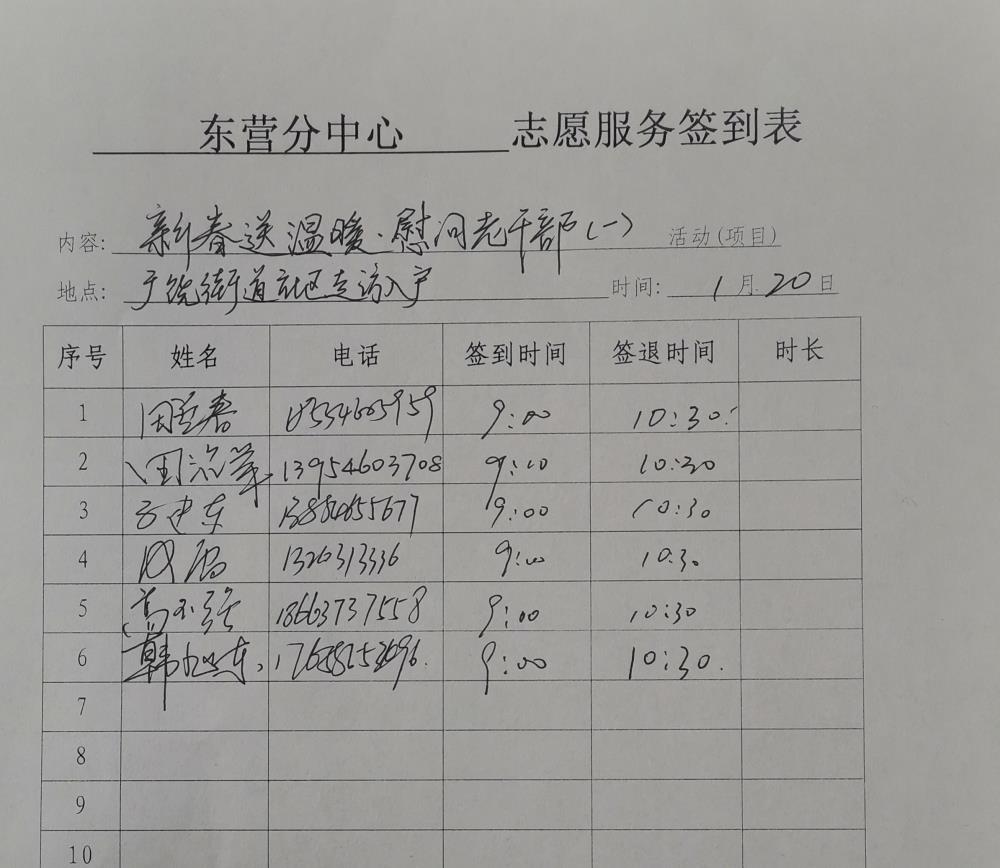 东营分中心 志愿服务签到表
内容: 新春送温暖·慰问老干部(一) 活动(项目)
地点: 街道社区走访入户 时间: 1月20日
序号 姓名 电话 签到时间 签退时间 时长
1 9:00 10:30
2 田 13954603708 9:00 10:30
3 建东 13884655677 9:00 10:30
4 9:00 10:30
5 18663737558 9:00 10:30
6 韩旭东 9:00 10:30
7
8
9
10